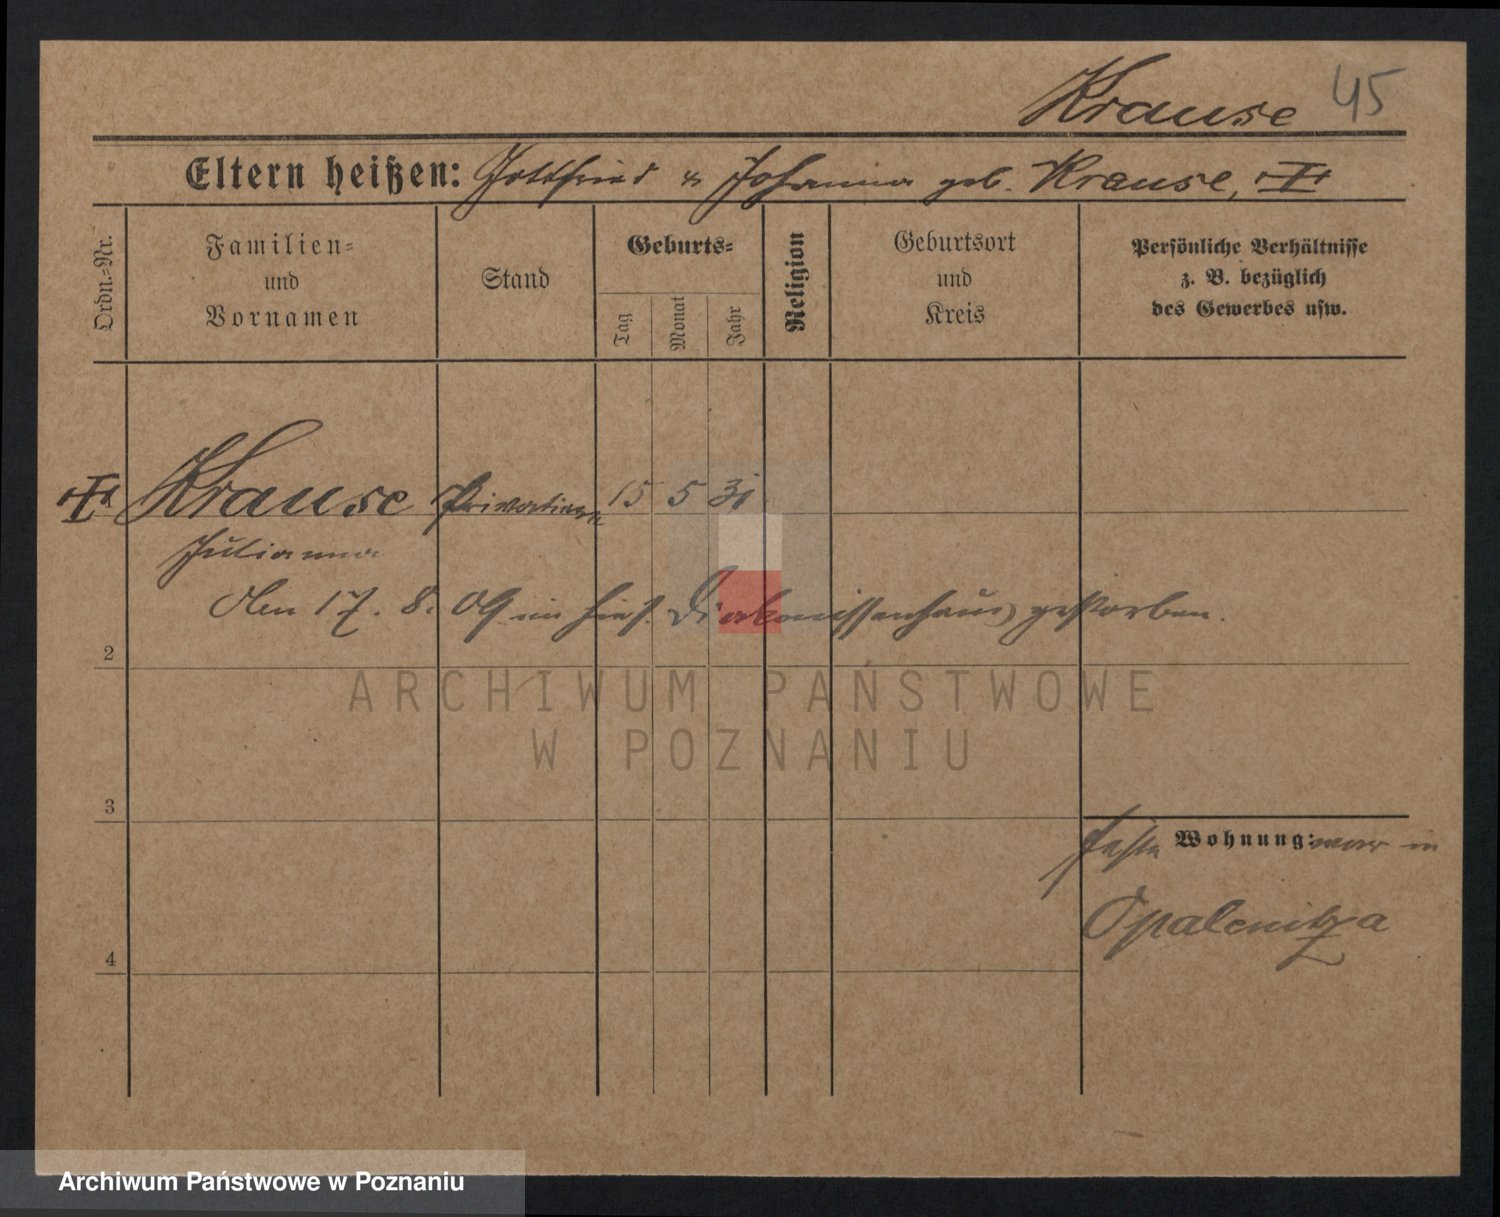 Krause 45
Eltern heißen: Gottfried u Johanna geb. Krause,
Ordn.-Nr.
Familien-
und
Vornamen
Stand
Geburts-
Tag
Monat
Jahr
Religion
Geburtsort
und
Kreis
Persönliche Verhältnisse
z. B. bezüglich
des Gewerbes usw.
Krause 15 5 31
Julianna
Den 17. 8. 09 im hies. Diakonissenhaus gestorben.
2
ARCHIWUM PAŃSTWOWE
W POZNANIU
3
feste Wohnung: war in
Opalenitza
4
Archiwum Państwowe w Poznaniu